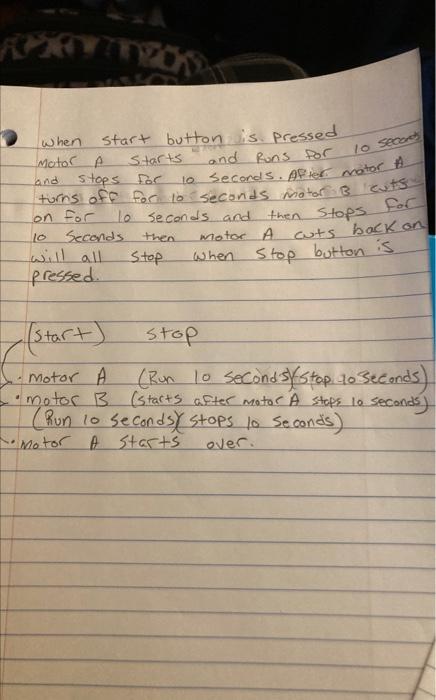 when start button is pressed
Motor A Starts and Runs for 10 seconds
and stops for 10 seconds. After motor A
turns off for 10 seconds motor B cuts
on for 10 seconds and then stops for
10 seconds then motor A cuts back on
will all stop when stop button is
pressed.
(start) stop
• Motor A (Run 10 seconds)(stop 10 seconds)
• motor B (starts after motor A stops 10 seconds)
(Run 10 seconds)(stops 10 seconds)
• Motor A starts over.